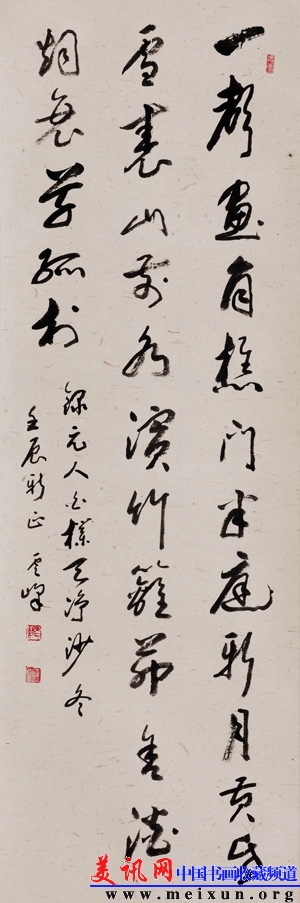 一聲畫角樵門半庭新月黄昏
雪裏山前水濱竹籬茅舍淡
烟衰草孤村
録元人白樸天净沙冬
壬辰新正雲峰
美讯网 中国书画收藏频道
www.meixun.org